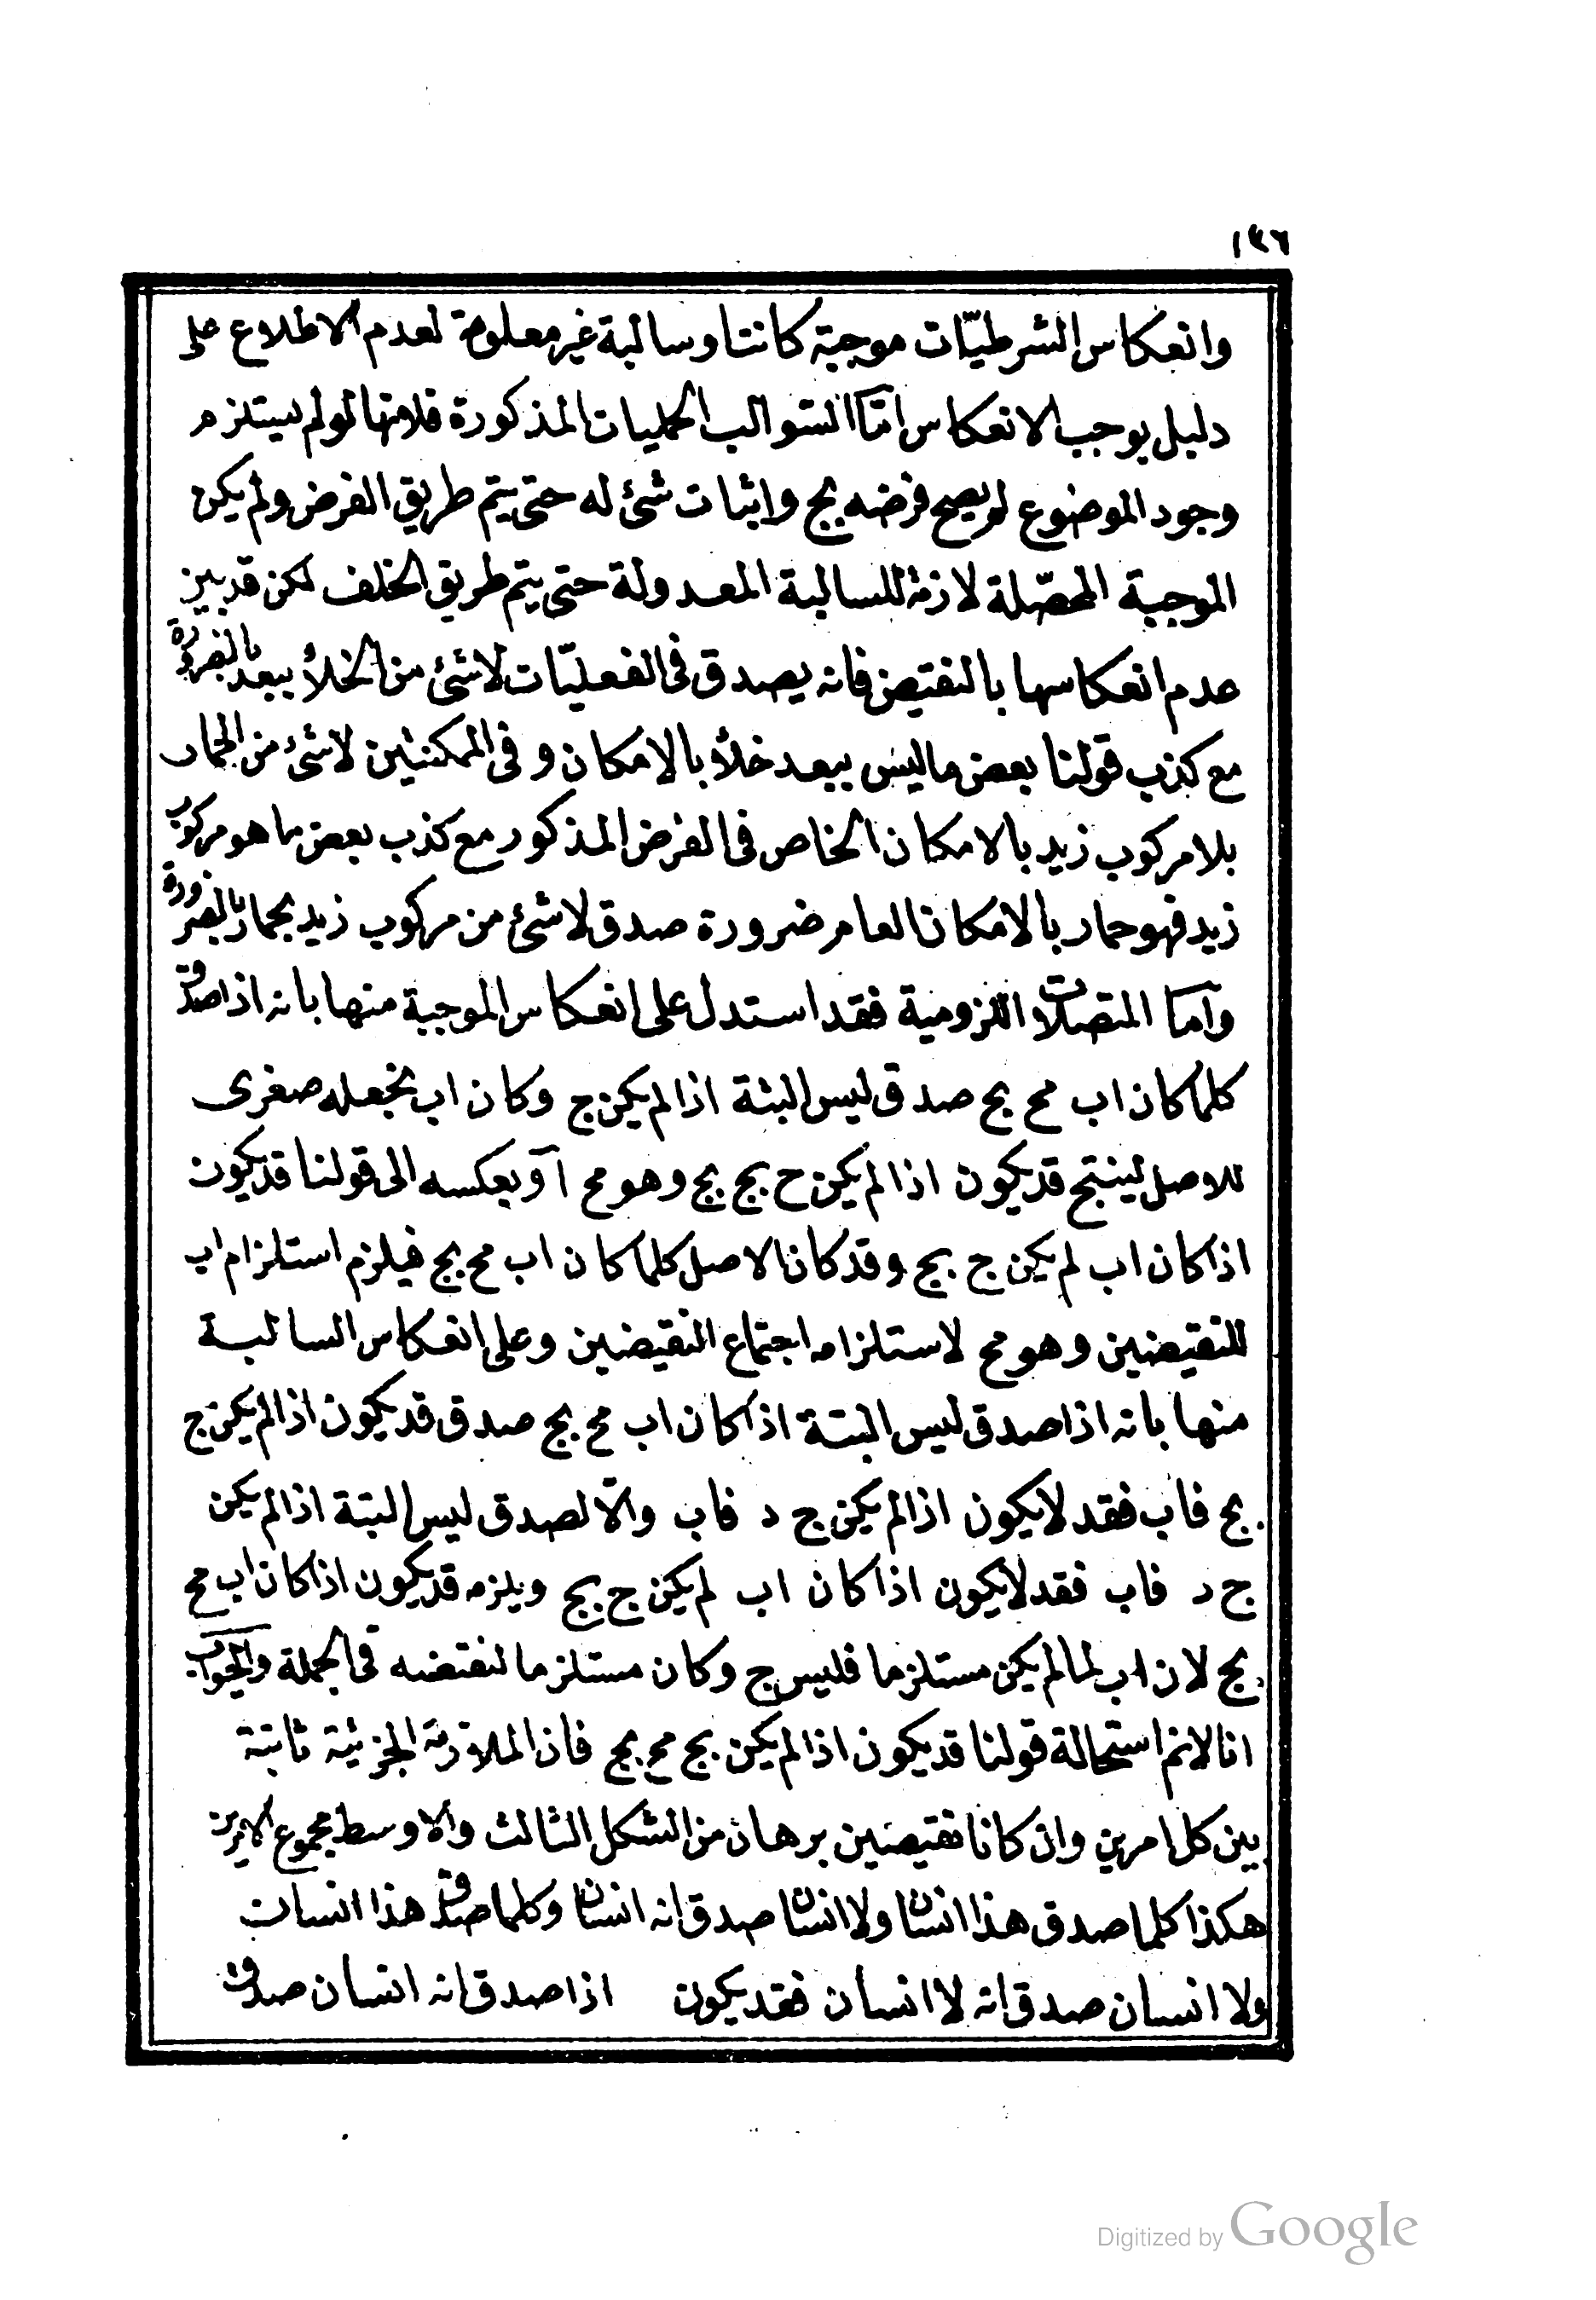 ١٣٦
وانعكاس الشرطيّات موجبة كانتا وسالبة غير معلومة لعدم الاطلاع على
دليل يوجب الانعكاس امّا السّوالب الحمليات المذكورة فلانها لو لم يستلزم
وجود الموضوع لم يصح فرضه بج واثبات شئ له حتى يتم طريق الفرض ولم يكن
الموجبة المحصّلة لازمة للسالبة المعدولة حتى يتم طريق الخلف لكن قد بين
عدم انعكاسها بالنقيض فانه يصدق فى الفعليّات لاشئ من الخلأ ببعد بالضرورة
مع كذب قولنا بعض ما ليس ببعد خلأ بالامكان و فى الممكنتين لاشئ من الحمار
بلا مركوب زيد بالامكان الخاص فى الفرض المذكور مع كذب بعض ما هو مركوب
زيد فهو حمار بالامكان العام ضرورة صدق لاشئ من مركوب زيد بحمار بالضرورة
وآما المتصلات اللزومية فقد استدل على انعكاس الموجبة منها بانه اذا صدق
كلما كان اب مح بج صدق ليس البتة اذا لم يكن ج وكان اب نجعله صغرى
للاصل لينتج قد يكون اذا لم يكن ح بج بج وهو مح آو بعكسه الى قولنا قد يكون
اذا كان اب لم يكن ج بج وقد كان الاصل كلما كان اب مح بج فيلزم استلزام اب
للنقيضين وهو مح لاستلزامه اجتماع النقيضين وعلى انعكاس السالبة
منها بانه اذا صدق ليس البتة اذا كان اب مح بج صدق قد يكون اذا لم يكن ج
بج فاب فقد لا يكون اذا لم يكن ج د فاب والّا لصدق ليس البتة اذا لم يكن
ج د فاب فقد لا يكون اذا كان اب لم يكن ج بج ويلزمه قد يكون اذا كان اب مح
بج لان اب لما لم يكن مستلزما فليس ج وكان مستلزما لنقيضه فى الجملة والجواب
انا لانم استحالة قولنا قد يكون اذا لم يكن بج مح بج فان الملازمة الجزئية ثابتة
بين كل امرين وان كانا نقيضين برهان من الشكل الثالث والاوسط مجموع الامرين
هكذا كلما صدق هذا انسان ولا انسان صدق انه انسان وكلما صدق هذا انسان
ولا انسان صدق انه لا انسان فقد يكون اذا صدق انه انسان صدق
Digitized by Google